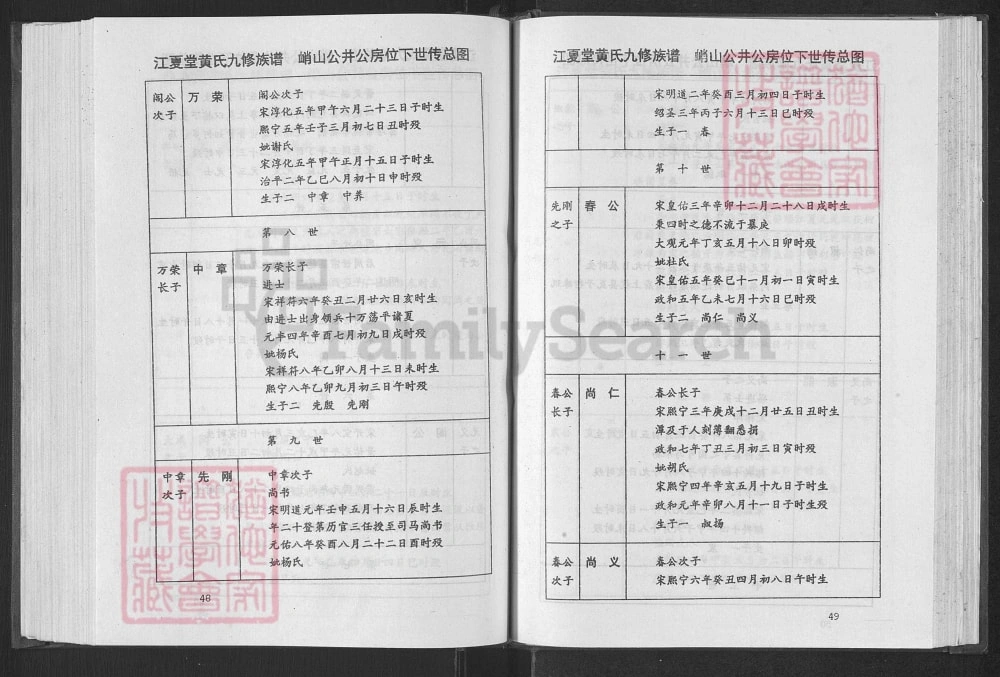 江夏堂黄氏九修族谱　峭山公井公房位下世传总图
阁公
次子
万荣
阁公次子
宋淳化五年甲午六月二十三日子时生
熙宁五年壬子三月初七日丑时殁
妣谢氏
宋淳化五年甲午正月十五日子时生
治平二年乙巳八月初十日申时殁
生子二　中章　中养
第八世
万荣
长子
中章
万荣长子
进士
宋祥符六年癸丑二月廿六日亥时生
由进士出身领兵十万荡平诸夏
元丰四年辛酉七月初九日戌时殁
妣杨氏
宋祥符八年乙卯八月十三日未时生
熙宁八年乙卯九月初三日午时殁
生子二　先殷　先刚
第九世
中章
次子
先刚
中章次子
尚书
宋明道元年壬申五月十六日辰时生
年二十登第历官三任授至司马尚书
元佑八年癸酉八月二十二日酉时殁
妣杨氏
48
江夏堂黄氏九修族谱　峭山公井公房位下世传总图
宋明道二年癸酉三月初四日子时生
绍圣三年丙子六月十三日巳时殁
生子一　春
第十世
先刚
之子
春公
宋皇佑三年辛卯十二月二十八日戌时生
秉四时之德不流于暴戾
大观元年丁亥五月十八日卯时殁
妣杜氏
宋皇佑五年癸巳十一月初一日寅时生
政和五年乙未七月十六日巳时殁
生子二　尚仁　尚义
十一世
春公
长子
尚仁
春公长子
宋熙宁三年庚戌十二月廿五日丑时生
泽及于人刻薄翻悉捐
政和七年丁丑三月初三日寅时殁
妣胡氏
宋熙宁四年辛亥五月十九日子时生
政和元年辛卯八月十一日子时生殁
生子一　叔扬
春公
次子
尚义
春公次子
宋熙宁六年癸丑四月初八日午时生
49
FamilySearch